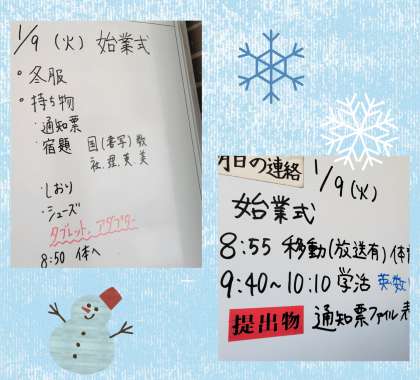 1/9 (火) 始業式
・冬服
・持ち物
・通知票
・宿題 国(書写)数
社.理.英.美
・しおり
・シューズ
タブレット、アダプター
8:50 体へ
明日の連絡
1/9(火)
始業式
8:55 移動(放送有)体
9:40~10:10 学活 英数
提出物 通知票ファイル